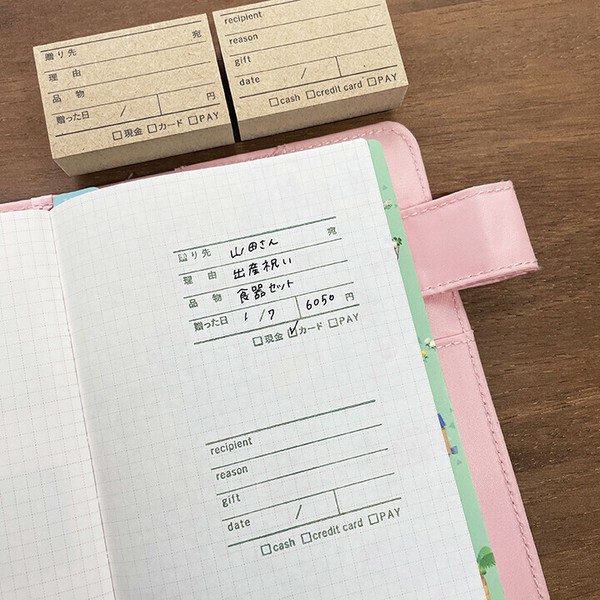 贈り先 宛
理由
品物
贈った日 / 円
□現金 □カード □PAY
recipient
reason
gift
date /
□cash □credit card □PAY
贈り先 山田さん 宛
理由 出産祝い
品物 食器セット
贈った日 1/7 6050 円
□現金 ☑カード □PAY
recipient
reason
gift
date /
□cash □credit card □PAY